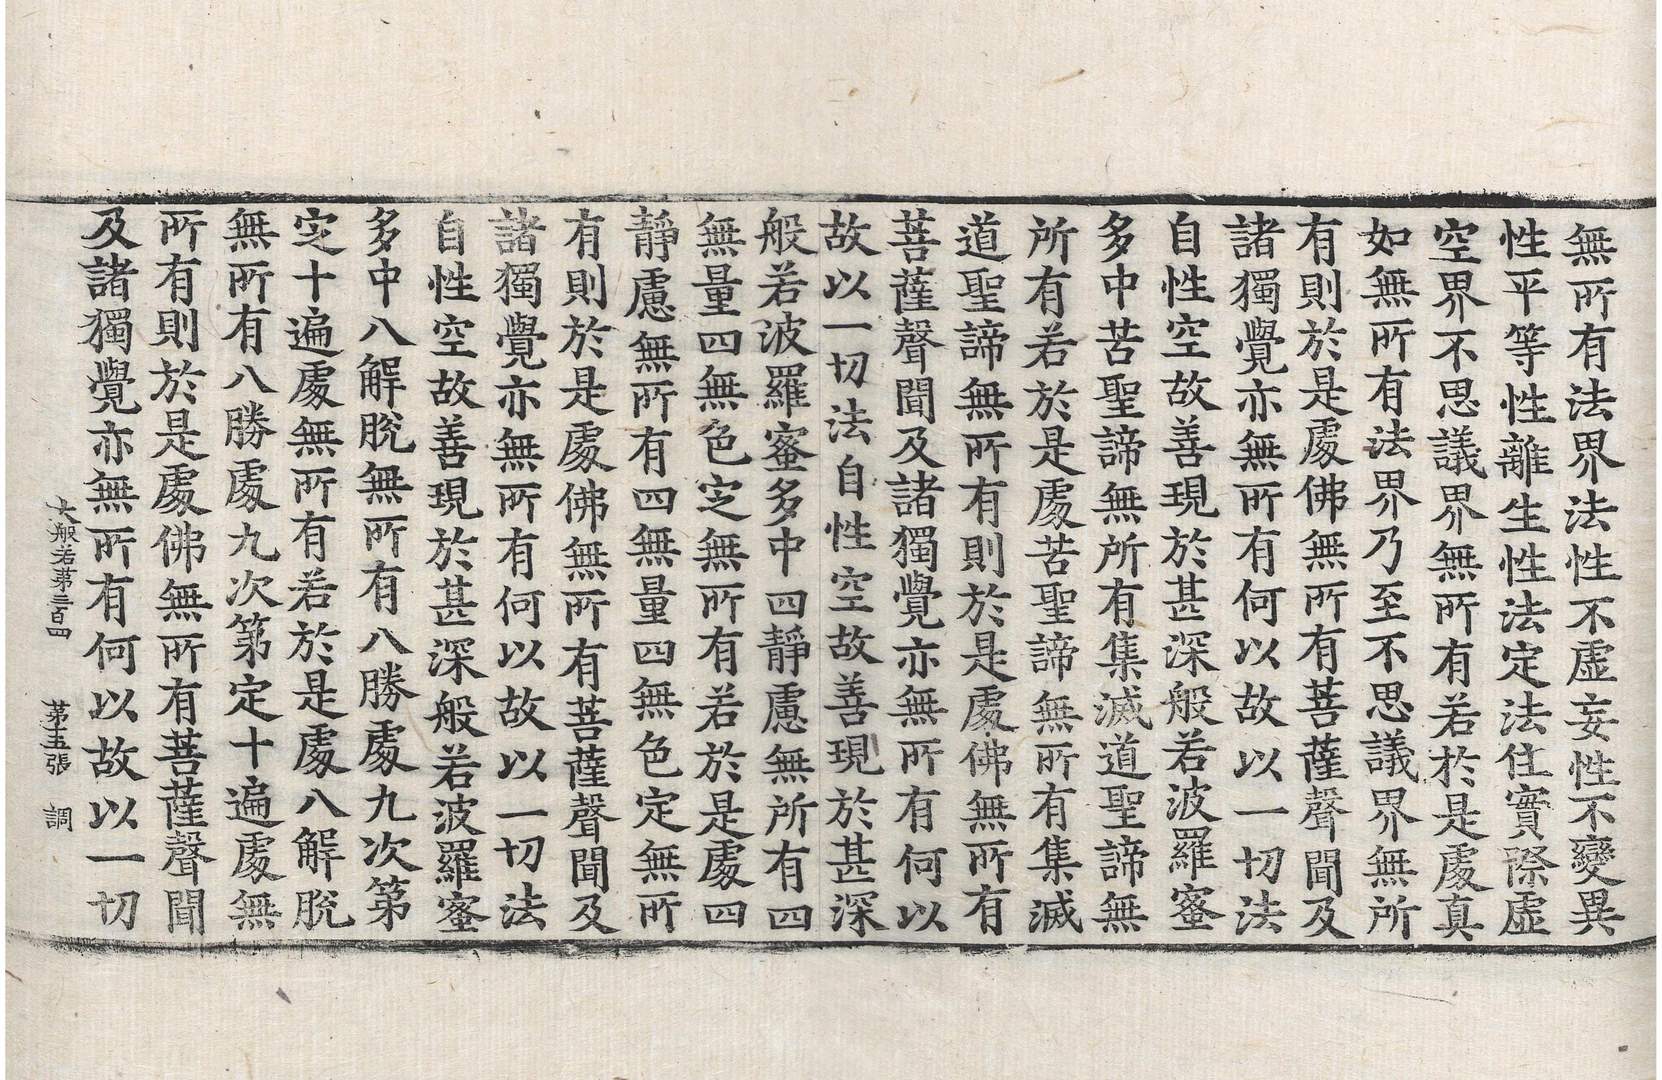 無所有法界法性不虛妄性不變異
性平等性離生性法定法住實際虛
空界不思議界無所有若於是處真
如無所有法界乃至不思議界無所
有則於是處佛無所有菩薩聲聞及
諸獨覺亦無所有何以故以一切法
自性空故善現於甚深般若波羅蜜
多中苦聖諦無所有集滅道聖諦無
所有若於是處苦聖諦無所有集滅
道聖諦無所有則於是處佛無所有
菩薩聲聞及諸獨覺亦無所有何以
故以一切法自性空故善現於甚深
般若波羅蜜多中四靜慮無所有四
無量四無色定無所有若於是處四
靜慮無所有四無量四無色定無所
有則於是處佛無所有菩薩聲聞及
諸獨覺亦無所有何以故以一切法
自性空故善現於甚深般若波羅蜜
多中八解脫無所有八勝處九次第
定十遍處無所有若於是處八解脫
無所有八勝處九次第定十遍處無
所有則於是處佛無所有菩薩聲聞
及諸獨覺亦無所有何以故以一切
大般若第三百四 第五張 調